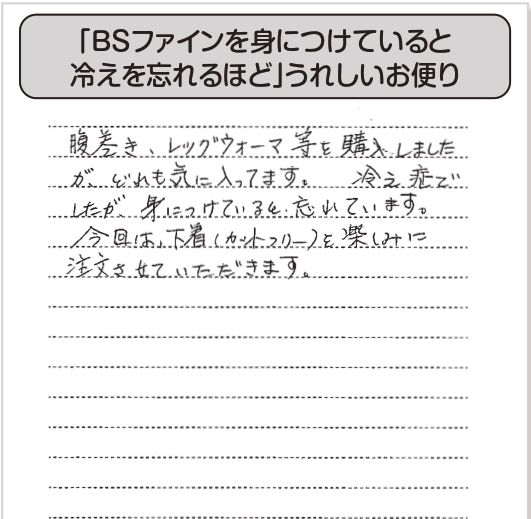 「BSファインを身につけていると
冷えを忘れるほど」うれしいお便り
腹巻き、レッグウォーマ等を購入しました
が、どれも気に入ってます。 冷え症で
したが、身につけていると、忘れています。
今回は、下着(カットフリー)を楽しみに
注文させていただきます。